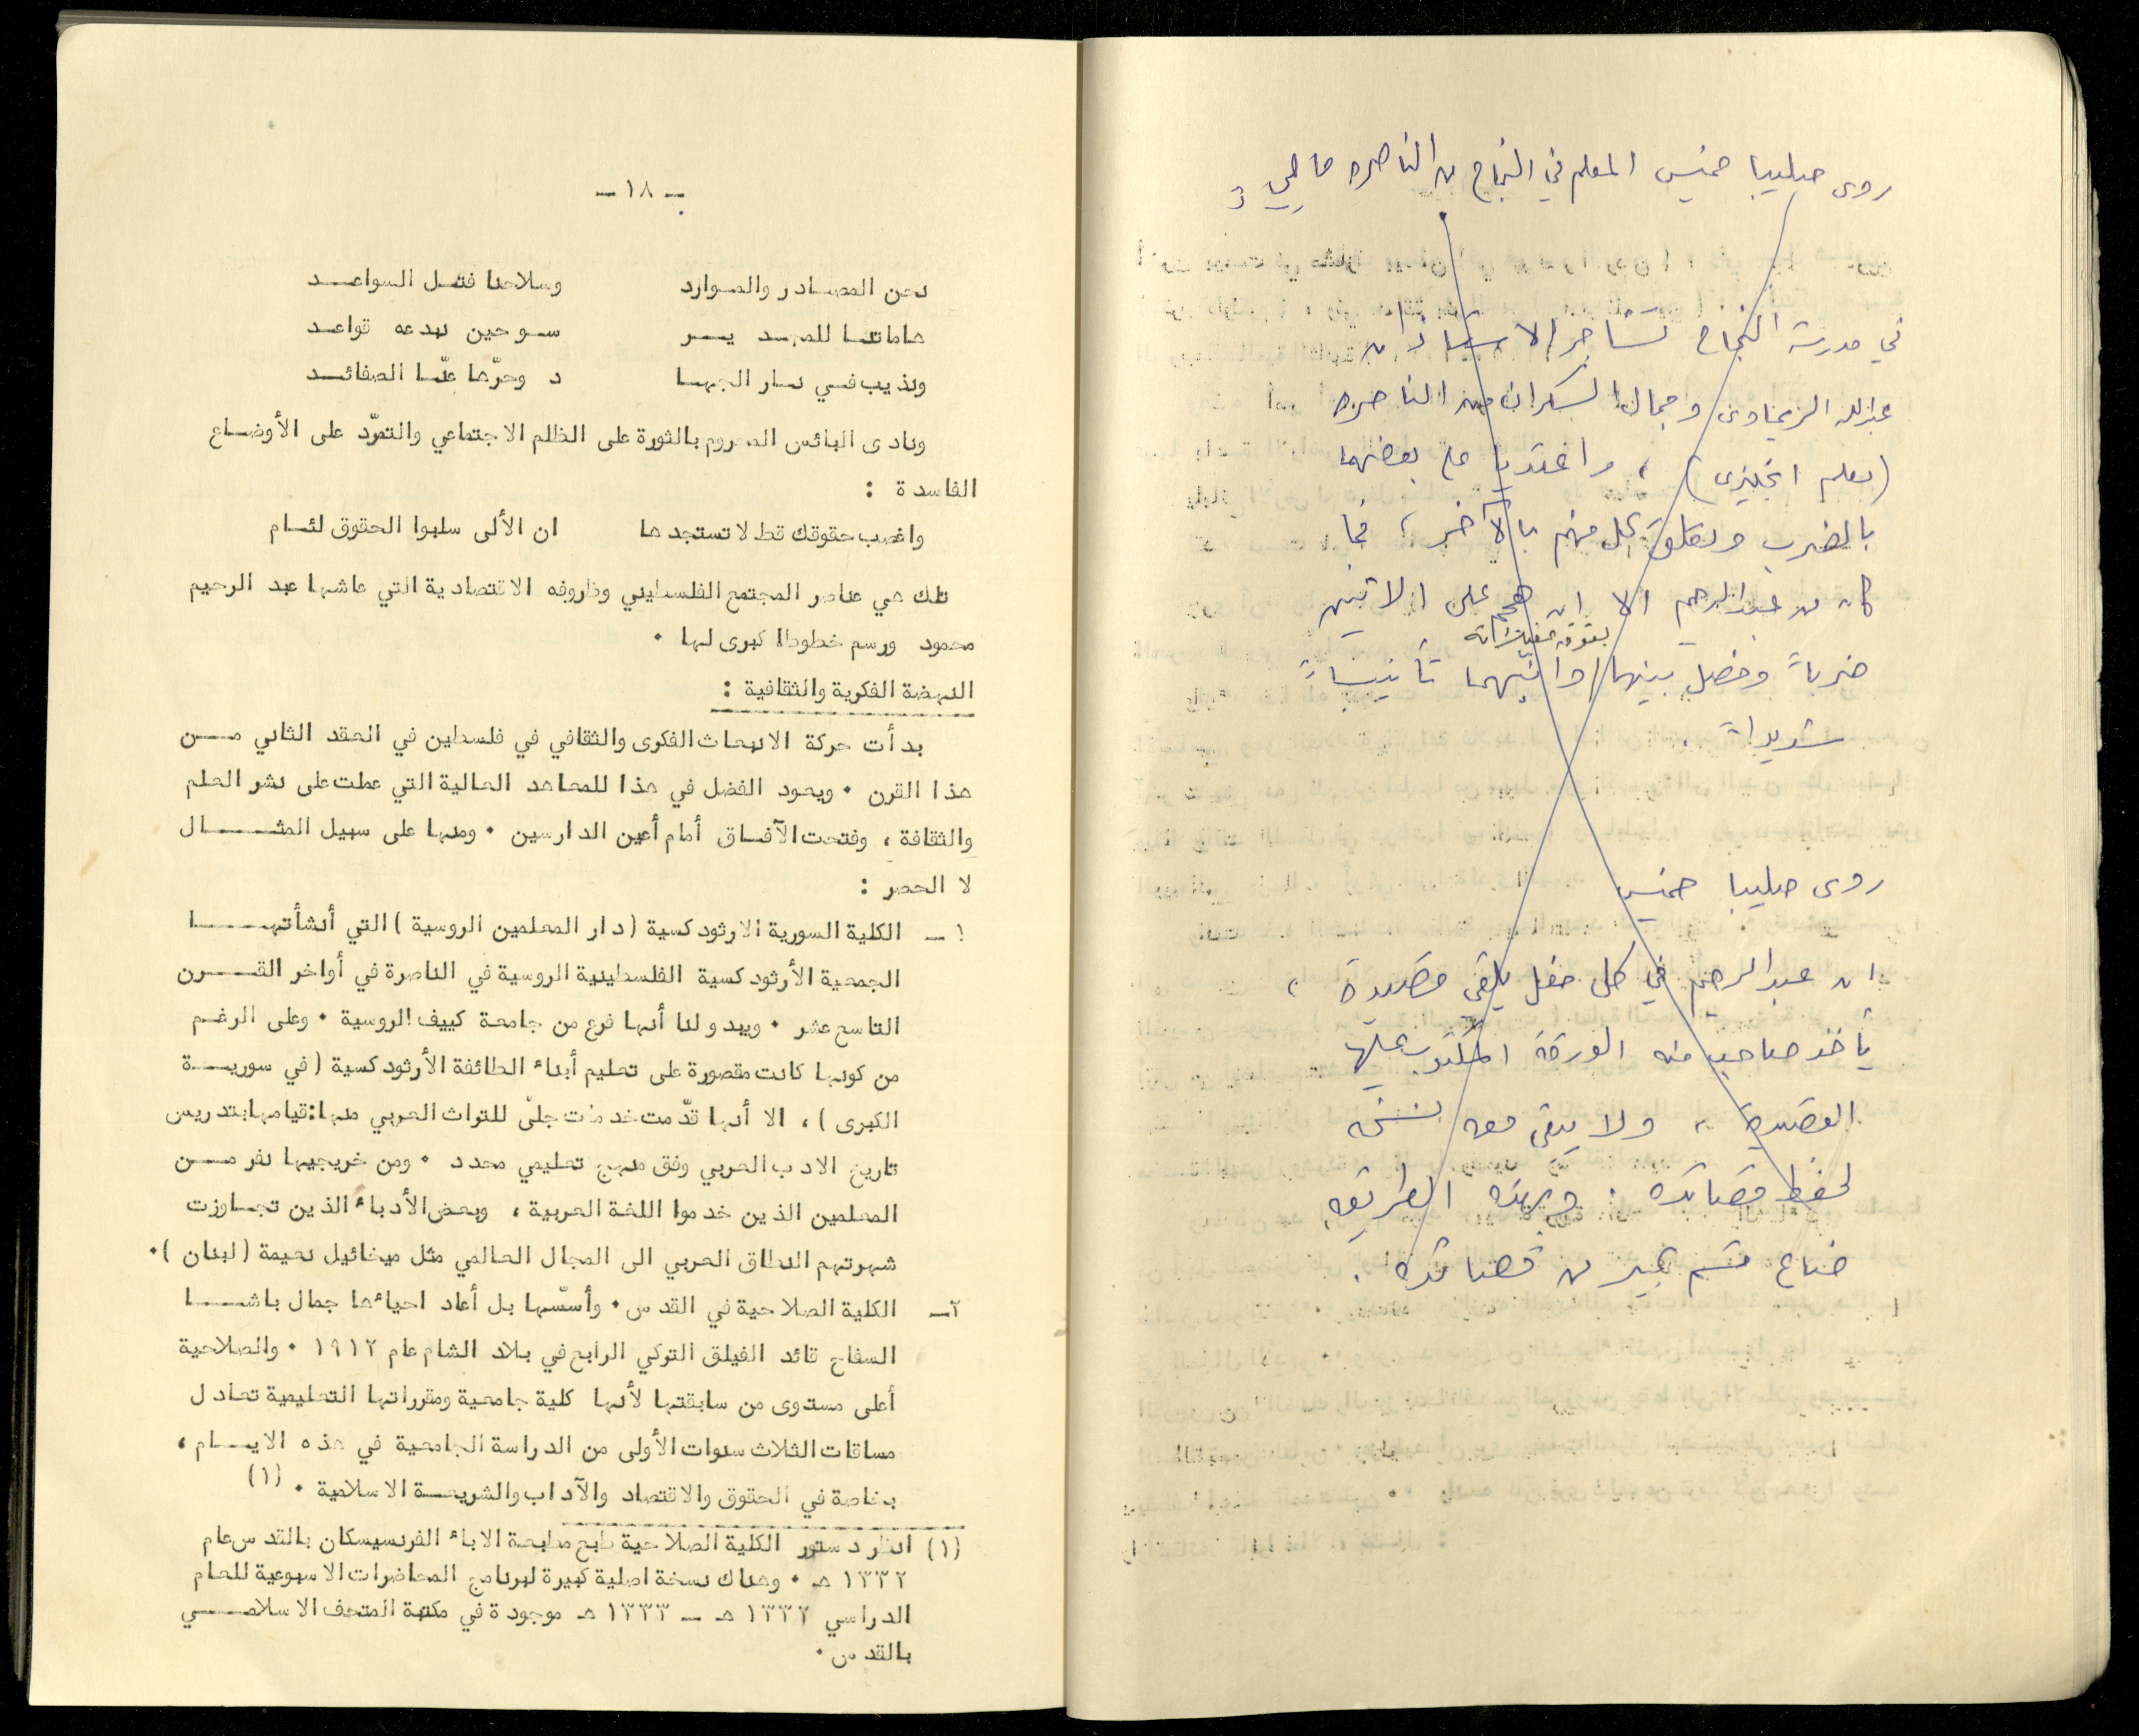 روى صليبا خميس المعلم في النجاح من الناصره ما يلي :
في مدرسة النجاح تشاجر الاستاذان
عبدالله الريماوي وجمال السكران من الناصره
(معلم انجليزي) ، واعتديا على بعضهما
بالضرب وتعلق كل منهم بالآخر ، فما
كان من عبدالرحيم الا ان هجم على الاثنين
بقوة
ضرباً وفصل بينهما وأنبهما تأنيباً
شديداً .
روى صليبا خميس
ان عبدالرحيم في كل حفل يلقي قصيدة ،
يأخذ صاحب منه الورقة المكتوب عليها
القصيدة ، ولا يبقى معه نسخه
لحفظ قصائده . وبهذه الطريقه
ضاع قسم كبير من قصائده .
- ١٨ -
نحن المصادر والموارد وسلاحنا فتل السواعد
هاماتنا للمجد يـر سو حين نبدعه قواعد
ونذيب في نار الجها د وحرّها عنّا الصفائد
ونادى البائس المحروم بالثورة على الظلم الاجتماعي والتمرّد على الأوضاع
الفاسدة :
واغصب حقوقك قط لا تستجدها ان الألى سلبوا الحقوق لئام
تلك هي عناصر المجتمع الفلسطيني وظروفه الاقتصادية التي عاشها عبد الرحيم
محمود ورسم خطوطا كبرى لها .
النهضة الفكرية والثقافية :
بدأت حركة الانبعاث الفكرى والثقافي في فلسطين في العقد الثاني من
هذا القرن . ويعود الفضل في هذا للمعاهد العالية التي عملت على نشر العلم
والثقافة ، وفتحت الآفاق أمام أعين الدارسين . ومنها على سبيل المثال
لا الحصر :
١ - الكلية السورية الارثودكسية (دار المعلمين الروسية) التي أنشأتها
الجمعية الأرثودكسية الفلسطينية الروسية في الناصرة في أواخر القرن
التاسع عشر . ويبدو لنا أنها فرع من جامعة كييف الروسية . وعلى الرغم
من كونها كانت مقصورة على تعليم أبناء الطائفة الأرثودكسية (في سورية
الكبرى) ، الا أنها قدّمت خدمات جلّى للتراث العربي منها: قيامها بتدريس
تاريخ الادب العربي وفق منهج تعليمي محدد . ومن خريجيها نفر من
المعلمين الذين خدموا اللغة العربية ، وبعض الأدباء الذين تجاوزت
شهرتهم النطاق العربي الى المجال العالمي مثل ميخائيل نعيمة (لبنان) .
٢- الكلية الصلاحية في القدس . وأسّسها بل أعاد احياءها جمال باشا
السفاح قائد الفيلق التركي الرابع في بلاد الشام عام ١٩١٢ . والصلاحية
أعلى مستوى من سابقتها لأنها كلية جامعية ومقرراتها التعليمية تعادل
مساقات الثلاث سنوات الأولى من الدراسة الجامعية في هذه الايام ،
بخاصة في الحقوق والاقتصاد والآداب والشريعة الاسلامية . (١)
(١) انظر دستور الكلية الصلاحية طبع مطبعة الاباء الفرنسيسكان بالقدس عام
١٣٣٢ هـ . وهناك نسخة اصلية كبيرة لبرنامج المحاضرات الاسبوعية للعام
الدراسي ١٣٣٢ هـ - ١٣٣٣ هـ موجودة في مكتبة المتحف الاسلامي
بالقدس .